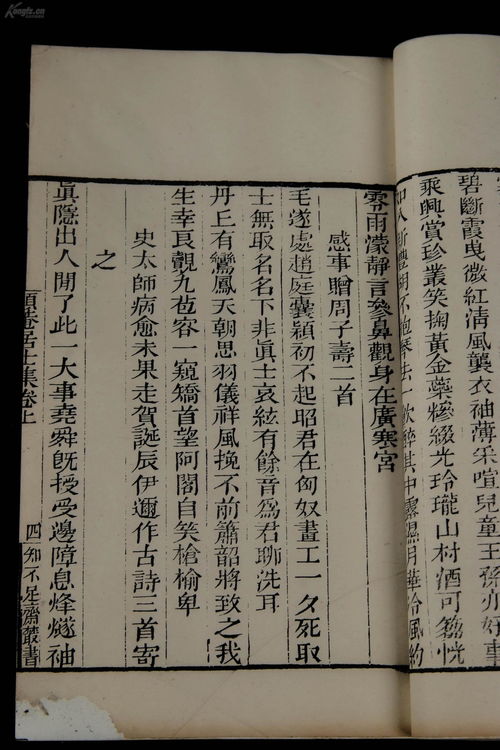 碧斷霞曳微紅清風襲衣袖薄采喧兒童王孫亦好事
乘興賞珍叢笑掬黃金蘂糝綴光玲瓏山村酒可篘恍
零雨濛靜言參鼻觀身在廣寒宮
感事贈周子壽二首
毛遂處趙庭囊穎初不起昭君在匈奴畫工一夕死取
士無取名名下非眞士哀絃有餘音爲君聊洗耳
丹丘有鸞鳳天朝思羽儀祥風挽不前簫韶將致之我
生幸良覿九苞容一窺矯首望阿閣自笑槍榆卑
史太師病愈未果走賀誕辰伊邇作古詩三首寄
之
眞隱出人間了此一大事堯舜既授受邊障息烽燧袖
頤菴居士集卷上
四
知不足齋叢書
Kongfz.cn